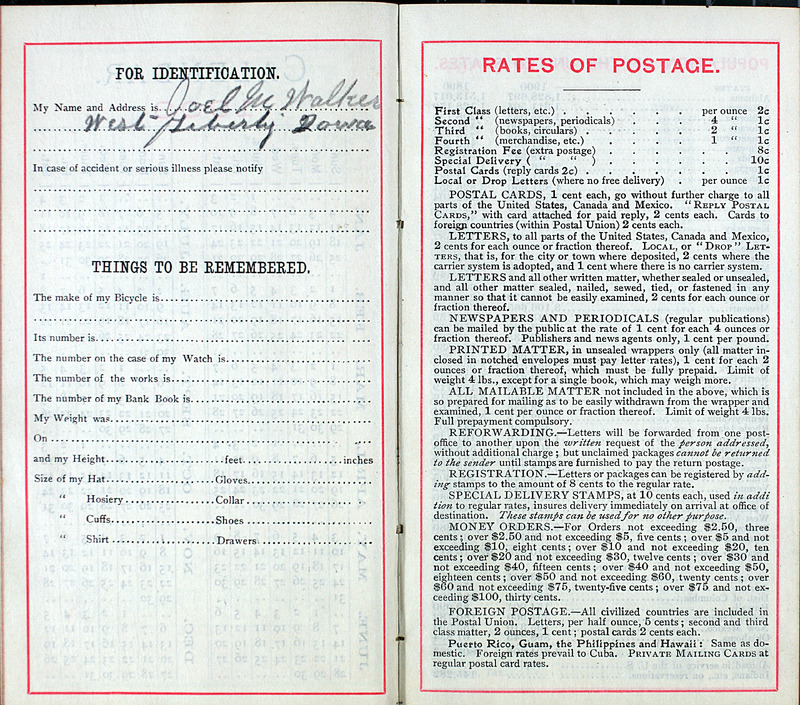 FOR IDENTIFICATION.
My Name and Address is Joel M Walker
West Liberty Iowa
In case of accident or serious illness please notify
THINGS TO BE REMEMBERED.
The make of my Bicycle is
Its number is
The number on the case of my Watch is
The number of the works is
The number of my Bank Book is
My Weight was
On
and my Height feet inches
Size of my Hat Gloves
" Hosiery Collar
" Cuffs Shoes
" Shirt Drawers
RATES OF POSTAGE.
First Class (letters, etc.) per ounce 2c
Second " (newspapers, periodicals) 4 " 1c
Third " (books, circulars) 2 " 1c
Fourth " (merchandise, etc.) 1 " 1c
Registration Fee (extra postage) 8c
Special Delivery ( " " ) 10c
Postal Cards (reply cards 2c) 1c
Local or Drop Letters (where no free delivery) per ounce 1c
POSTAL CARDS, 1 cent each, go without further charge to all
parts of the United States, Canada and Mexico. "REPLY POSTAL
CARDS," with card attached for paid reply, 2 cents each. Cards to
foreign countries (within Postal Union) 2 cents each.
LETTERS, to all parts of the United States, Canada and Mexico,
2 cents for each ounce or fraction thereof. LOCAL, or "DROP" LET-
TERS, that is, for the city or town where deposited, 2 cents where the
carrier system is adopted, and 1 cent where there is no carrier system.
LETTERS and all other written matter, whether sealed or unsealed,
and all other matter sealed, nailed, sewed, tied, or fastened in any
manner so that it cannot be easily examined, 2 cents for each ounce or
fraction thereof.
NEWSPAPERS AND PERIODICALS (regular publications)
can be mailed by the public at the rate of 1 cent for each 4 ounces or
fraction thereof. Publishers and news agents only, 1 cent per pound.
PRINTED MATTER, in unsealed wrappers only (all matter in-
closed in notched envelopes must pay letter rates), 1 cent for each 2
ounces or fraction thereof, which must be fully prepaid. Limit of
weight 4 lbs., except for a single book, which may weigh more.
ALL MAILABLE MATTER not included in the above, which is
so prepared for mailing as to be easily withdrawn from the wrapper and
examined, 1 cent per ounce or fraction thereof. Limit of weight 4 lbs.
Full prepayment compulsory.
REFORWARDING.—Letters will be forwarded from one post-
office to another upon the written request of the person addressed,
without additional charge; but unclaimed packages cannot be returned
to the sender until stamps are furnished to pay the return postage.
REGISTRATION.—Letters or packages can be registered by add-
ing stamps to the amount of 8 cents to the regular rate.
SPECIAL DELIVERY STAMPS, at 10 cents each, used in addi
tion to regular rates, insures delivery immediately on arrival at office of
destination. These stamps can be used for no other purpose.
MONEY ORDERS.—For Orders not exceeding $2.50, three
cents; over $2.50 and not exceeding $5, five cents; over $5 and not
exceeding $10, eight cents; over $10 and not exceeding $20, ten
cents; over $20 and not exceeding $30, twelve cents; over $30 and
not exceeding $40, fifteen cents; over $40 and not exceeding $50,
eighteen cents; over $50 and not exceeding $60, twenty cents; over
$60 and not exceeding $75, twenty-five cents; over $75 and not ex-
ceeding $100, thirty cents.
FOREIGN POSTAGE.—All civilized countries are included in
the Postal Union. Letters, per half ounce, 5 cents; second and third
class matter, 2 ounces, 1 cent; postal cards 2 cents each.
Puerto Rico, Guam, the Philippines and Hawaii: Same as do-
mestic. Foreign rates prevail to Cuba. PRIVATE MAILING CARDS at
regular postal card rates.